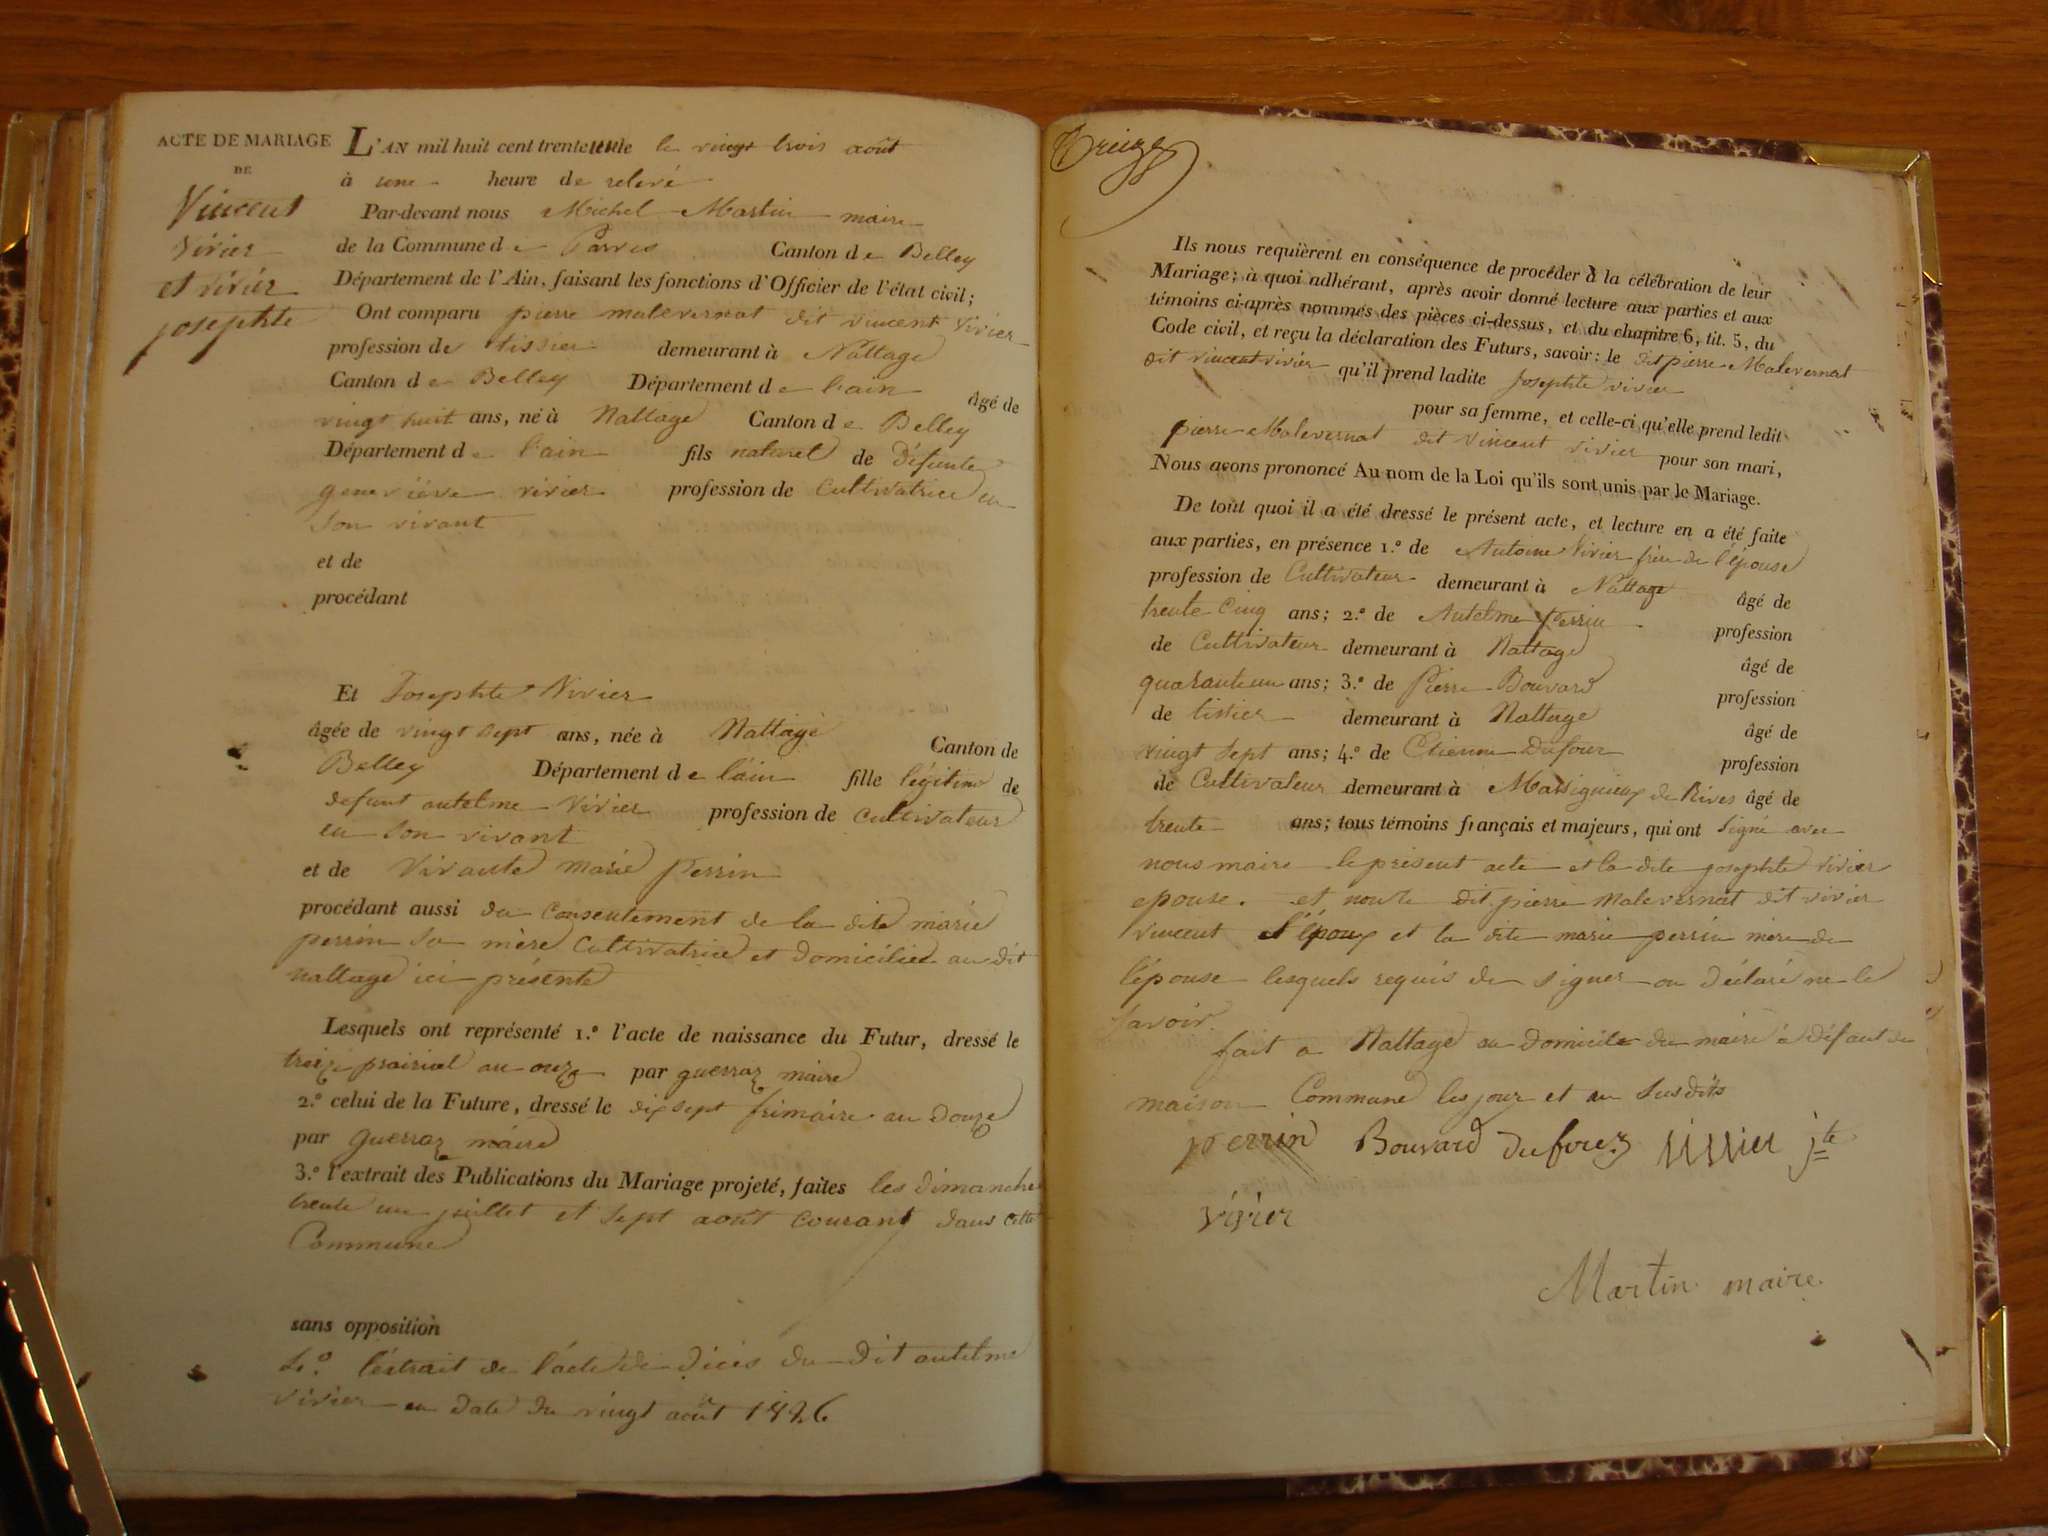 ACTE DE MARIAGE
DE
Vincent
Vivier
et vivier
josephte
L'AN mil huit cent trente le vingt trois août
à une heure de relevé
Par-devant nous Michel Martin maire
de la Commune de Parves Canton de Belley
Département de l'Ain, faisant les fonctions d'Officier de l'état civil;
Ont comparu pierre malevernat dit vincent vivier
profession de tissier demeurant à Nattage
Canton de Belley Département de l'ain âgé de
vingt huit ans, né à Nattage Canton de Belley
Département de l'ain fils naturel de défunte
geneviève vivier profession de Cultivatrice en
son vivant
et de
procédant
Et Josephte Vivier
âgée de vingt sept ans, née à Nattage Canton de
Belley Département de l'ain fille légitime de
defunt antelme Vivier profession de cultivateur
en son vivant
et de vivante marie Perrin
procédant aussi du consentement de la dite marie
perrin sa mère Cultivatrice et domiciliée au dit
nattage ici présente
Lesquels ont représenté 1.º l'acte de naissance du Futur, dressé le
treize prairial an onze par guerraz maire
2.º celui de la Future, dressé le dix sept frimaire an douze
par guerraz maire
3.º l'extrait des Publications du Mariage projeté, faites les dimanche
trente un juillet et sept août courant dans cette
Commune
sans opposition
4.º l'extrait de l'acte de décès du dit antelme
vivier en date du vingt août 1826
Treize
Ils nous requièrent en conséquence de procéder à la célébration de leur
Mariage; à quoi adhérant, après avoir donné lecture aux parties et aux
témoins ci-après nommés des pièces ci-dessus, et du chapitre 6, tit. 5, du
Code civil, et reçu la déclaration des Futurs, savoir: le dit pierre Malevernat
dit vincent vivier qu'il prend ladite Josephte vivier
pour sa femme, et celle-ci qu'elle prend ledit
pierre Malevernat dit Vincent vivier pour son mari,
Nous avons prononcé Au nom de la Loi qu'ils sont unis par le Mariage.
De tout quoi il a été dressé le présent acte, et lecture en a été faite
aux parties, en présence 1.º de Antoine Vivier frère de l'épouse
profession de Cultivateur demeurant à Nattage âgé de
trente cinq ans; 2.º de Antelme Perrin profession
de Cultivateur demeurant à Nattage âgé de
quarante un ans; 3.º de Pierre Bouvard profession
de tissier demeurant à Nattage âgé de
vingt sept ans; 4.º de Etienne Dufour profession
de Cultivateur demeurant à Massignieux de Rives âgé de
trente ans; tous témoins français et majeurs, qui ont signé avec
nous maire le présent acte et la dite josephte vivier
epouse. et non le dit pierre malevernat dit vivier
vincent l'époux et la dite marie perrin mère de
l'épouse lesquels requis de signer on déclaré ne le
savoir.
fait a Nattage au domicile du maire à défaut de
maison Commune les jour et an susdits
perrin Bouvard Dufour vivier jte
vivier
Martin maire